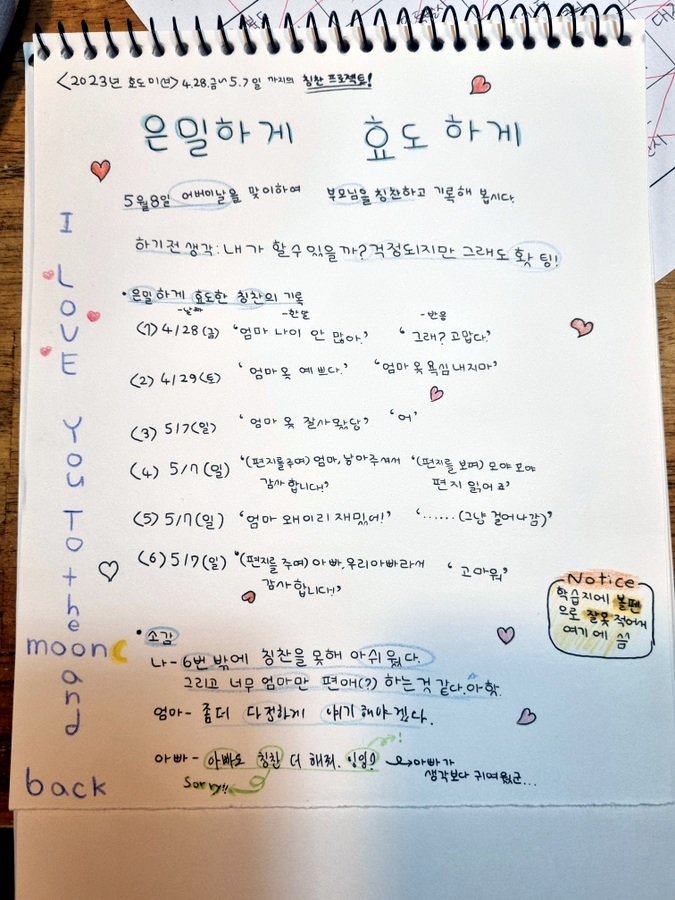 <2023년 효도미션> 4.28.금~5.7일 까지의 칭찬 프로젝트!
은밀하게 효도하게
5월8일 어버이날을 맞이하여 부모님을 칭찬하고 기록해 봅시다.
하기전 생각: 내가 할수있을까? 걱정되지만 그래도 홧팅!
• 은밀하게 효도한 칭찬의 기록
-날짜 -한말 -반응
(1) 4/28(금) ‘엄마 나이 안 많아.’ ‘그래? 고맙다.’
(2) 4/29(토) ‘엄마옷 예쁘다.’ ‘엄마 옷 욕심내지마’
(3) 5/7(일) ‘엄마 옷 잘사왔당’ ‘어’
(4) 5/7(일) ‘(편지를주며) 엄마, 낳아주셔서 ‘(편지를 보며) 오야 오야
감사합니다!’ 편지 읽어
(5) 5/7(일) ‘엄마 왜이리 재밌어!’ ‘……(그냥 걸어나감)’
(6) 5/7(일) ‘(편지를 주며) 아빠, 우리아빠라서 ‘고마워’
감사합니다!’
• 소감
나- 6번 밖에 칭찬을 못해 아쉬웠다.
그리고 너무 엄마만 편애(?) 하는것 같다.
엄마- 좀더 다정하게 얘기해야겠다.
아빠- 아빠도 칭찬 더 해줘. 잉잉 !
Sorry!! →아빠가
생각보다 귀여웠군...
I LOVE YOU To the moon and back
Notice
학습지에 볼펜
으로 잘못 적어서
여기에 씀